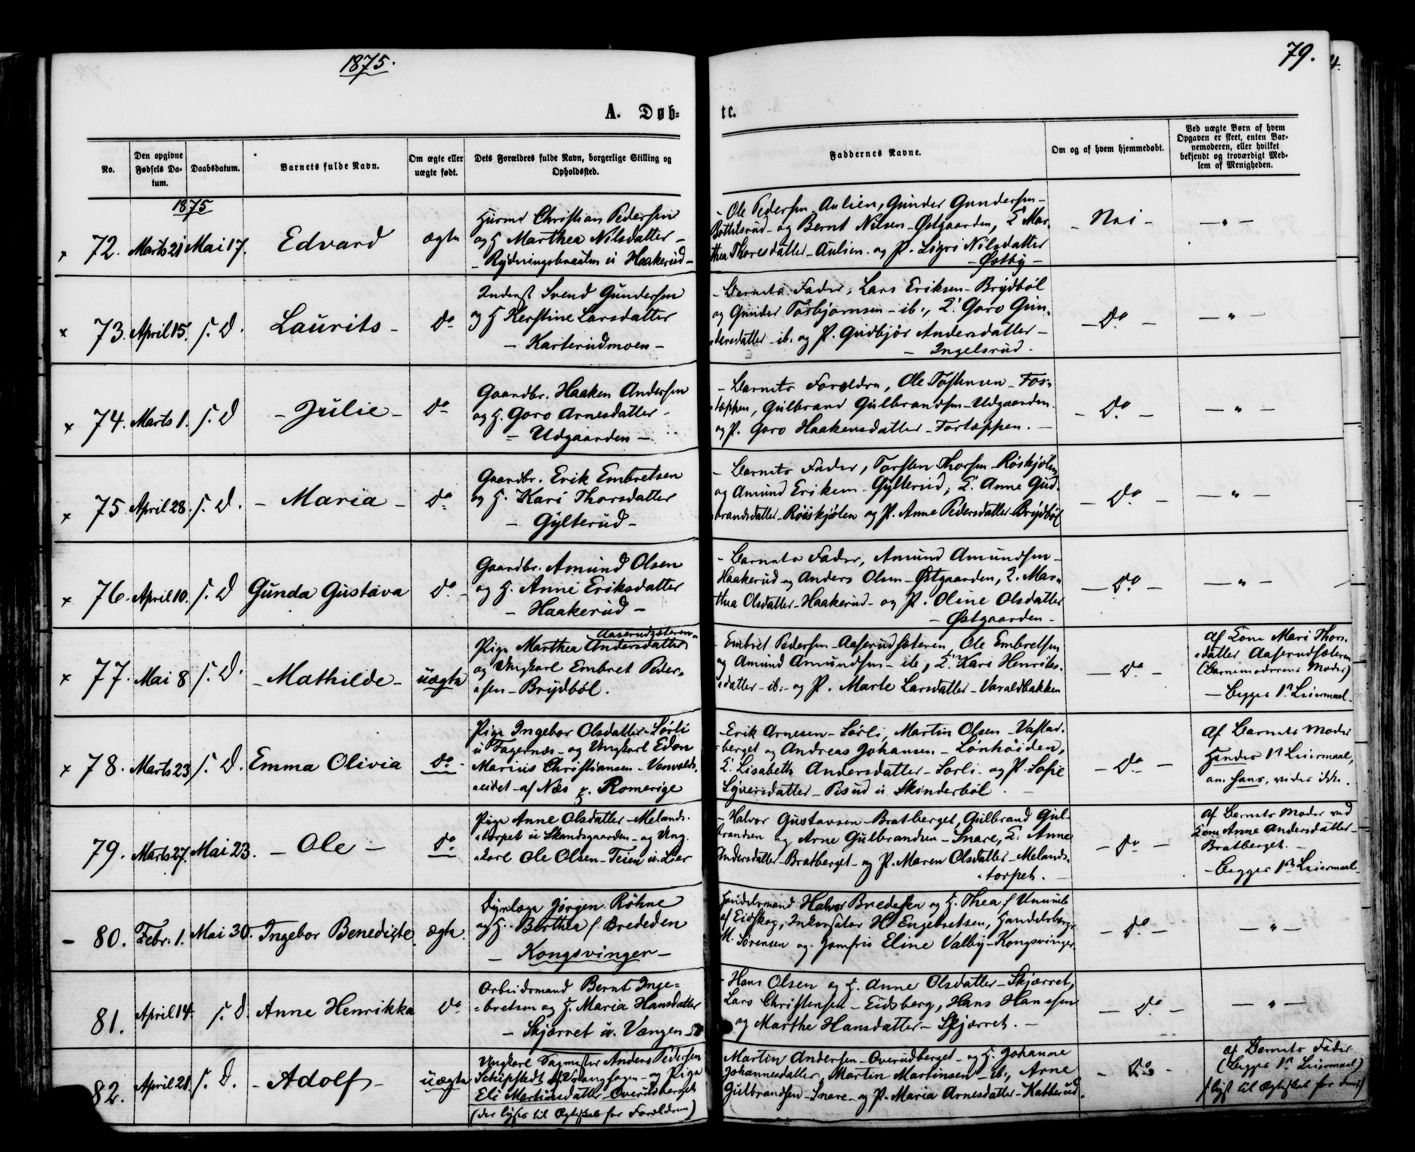 1875.
79.
A. Døb-
te.
No.
Den opgivne
Fødsels Da-
tum.
Daabsdatum.
Barnets fulde Navn.
Om ægte eller
uægte født.
Dets Forældres fulde Navn, borgerlige Stilling og
Opholdssted.
Faddernes Navne.
Om og af hvem hjemmedøbt.
Ved uægte Børn af hvem
Opgaven er skeet, enten Bar-
nemoderen, eller hvilket
bekjendt og troværdigt Med-
lem af Menigheden.
1875
x 72. Marts 21 Mai 17. Edvard ægte
Gunder Christian Pedersen
og H. Marthea Nilsdatter –
– Rydningsbraaten u Haakerud –
– Ole Pedersen Aulien, Gunder Gundersen –
Bottilsrud – og Bernt Nilsen – Østgaarden, K. Mar-
thea Thoresdatter – Aulien – og P. Sigri Nilsdatter
– Østby –
– Nei – – „ –
x 73. April 15. s. D. Laurits – do
Inderst Svend Gundersen
og H. Kerstine Larsdatter
– Karterudmoen –
– Barnets Fader, Lars Eriksen – Brydbøl
og Gunder Torbjørnsen – ib., K. Goro Gun-
dersdatter – ib. og P. Gudbjør Andersdatter –
– Ingelsrud.
– Do – – „ –
x 74. Marts 1. s. D – Julie – do
Gaardbr. Haaken Andersen
og H. Goro Arnesdatter –
– Udgaarden –
– Barnets Forældre, Ole Tostensen – For-
tappen, Gulbrand Gulbrandsen – Udgaarden
og P. Goro Haakensdatter – Fortappen. –
– Do – – „ –
x 75. April 28. s. D. – Maria – do
Gaardbr. Erik Embretsen
og H. Kari Thorsdatter
– Gylterud –
– Barnets Fader, Torsten Thorsen – Røiskjølen
og Amund Eriksen – Gylterud, K. Anne Gud-
brandsdatter – Røiskjølen og P. Anne Pedersdatter Brydbøl
– Do – – „ –
x 76. April 10. s. D Gunda Gustava do –
Gaardbr. Amund Olsen
og H. Anne Eriksdatter
– Haakerud –
– Barnets Fader, Amund Amundsen –
Haakerud og Anders Olsen – Østgaarden, K. Mar-
thea Olsdatter – Haakerud – og P. Oline Olsdatter
– Østgaarden –
– Do – – „ –
x 77. Mai 8 s. D. – Mathilde – uægte
Aaserudsæteren
Pige Marthea Andersdatter
og Ungkarl Embret Peder-
sen – Brydbøl.
Embret Pedersen – Aaserudsæteren, Ole Embretsen
og Amund Amundsen – ib., K. Kari Henriks-
datter – ib. – og P. Marte Larsdatter – Varaldbakken
– Do –
Af Kone Mari Thors-
datter Aaserudsæteren
(Barnemoderens Moder)
– Begges 1ste Leiermaal –
x 78. Marts 23 s. D. Emma Olivia do
Pige Ingebor Olsdatter – Sørli
u Fagernæs – og Ungkarl Edon
Marius Christiansen – Vanvolds-
eidet – af Næs p. Romerige
– Erik Arnesen – Sørli, Martin Olsen –
berget og Andreas Johansen – Lønhøiden,
K. Lisabeth Andersdatter – Sørli – og P. Sofie
– u Skinderbøl –
– Do –
Af Barnets Moder
Hendes 1ste Leiermaal,
om hans, vides ikke.
79. Marts 27 Mai 23. – Ole – do
Pige Anne Olsdatter – Melands-
torpet u Skandsgaarden – og Ung-
karl Ole Olsen – Teien u. Lier
– Halvor Gustavsen – Bratberget, Gulbrand Gul-
brandsen og Arne Gulbrandsen – Snare, K. Anne
Andersdatter – Bratberget – og P. Maren Olsdatter – Melands-
torpet. –
– Do –
af Barnets Moder ved
Kone Anne Andersdatter –
Bratberget –
– Begges 1ste Leiermaal –
– 80. Febr. 1. Mai 30. Ingebor Benedigte. ægte.
Dyrlæge Jørgen Røhne
og H. Berthea f. Brededen
– Kongsvinger –
Handelsmand Halvor Bredesen og H. Thea f.
af Eidskog, H. Engebretsen, Handelsborger
M. Sørensen og Jomfru Eline Valby – Kongsvinger
– Do – – „ –
81. April 14. s. d. Anne Henrikka do
Arbeidsmand Bernt Inge-
bretsen og H. Maria Hansdatter
– Skjærret u. Vangen –
– Hans Olsen og H. Anne Olsdatter – Skjærret,
Lars Christensen – Eidsberg, Hans Hansen
og Marthe Hansdatter – Skjærret. –
– do – – „ –
82. April 21. s. D. – Adolf – uægte
Ungkarl Anders Pedersen
og Pige
Eli Martinsdatter – Overudsberget
(der lyses til Ægteskab for Forældrene)
Martin Andersen – Overudberget – og H. Johanne
Johannesdatter, Martin Martinsen – ib., Arne
Gulbrandsen – Snare – og P. Maria Arnesdatter – Katterud.
– Do –
af Barnets Fader
(Begges 1ste Leiermaal)